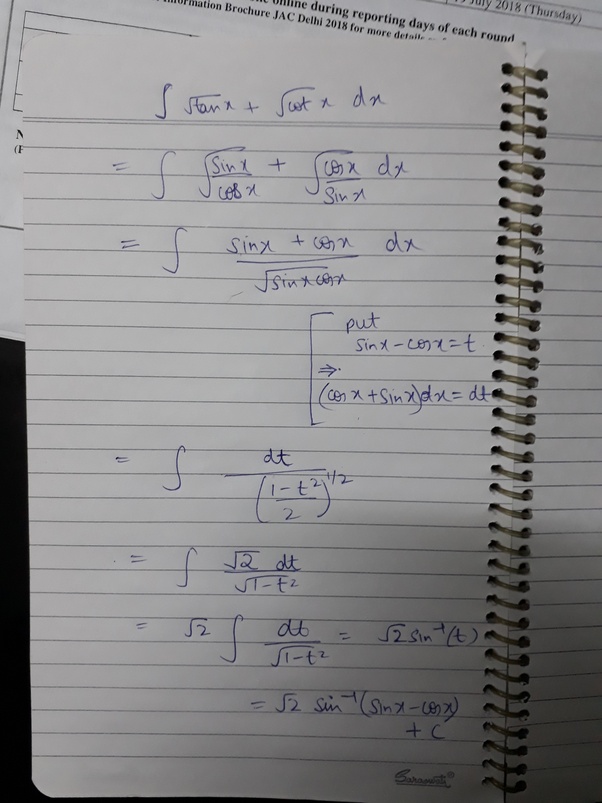 July 2018 (Thursday)
online during reporting days of each round
Information Brochure JAC Delhi 2018 for more details
∫ √tanx + √cot x dx
= ∫ √(sinx/cosx) + √(cosx/sinx) dx
= ∫ (sinx + cosx)/√(sinxcosx) dx
put
sinx-cosx=t
⇒
(cosx+sinx)dx=dt
= ∫ dt/((1-t²)/2)^1/2
= ∫ √2 dt/√(1-t²)
= √2 ∫ dt/√(1-t²) = √2 sin⁻¹(t)
= √2 sin⁻¹(sinx-cosx)
+ C